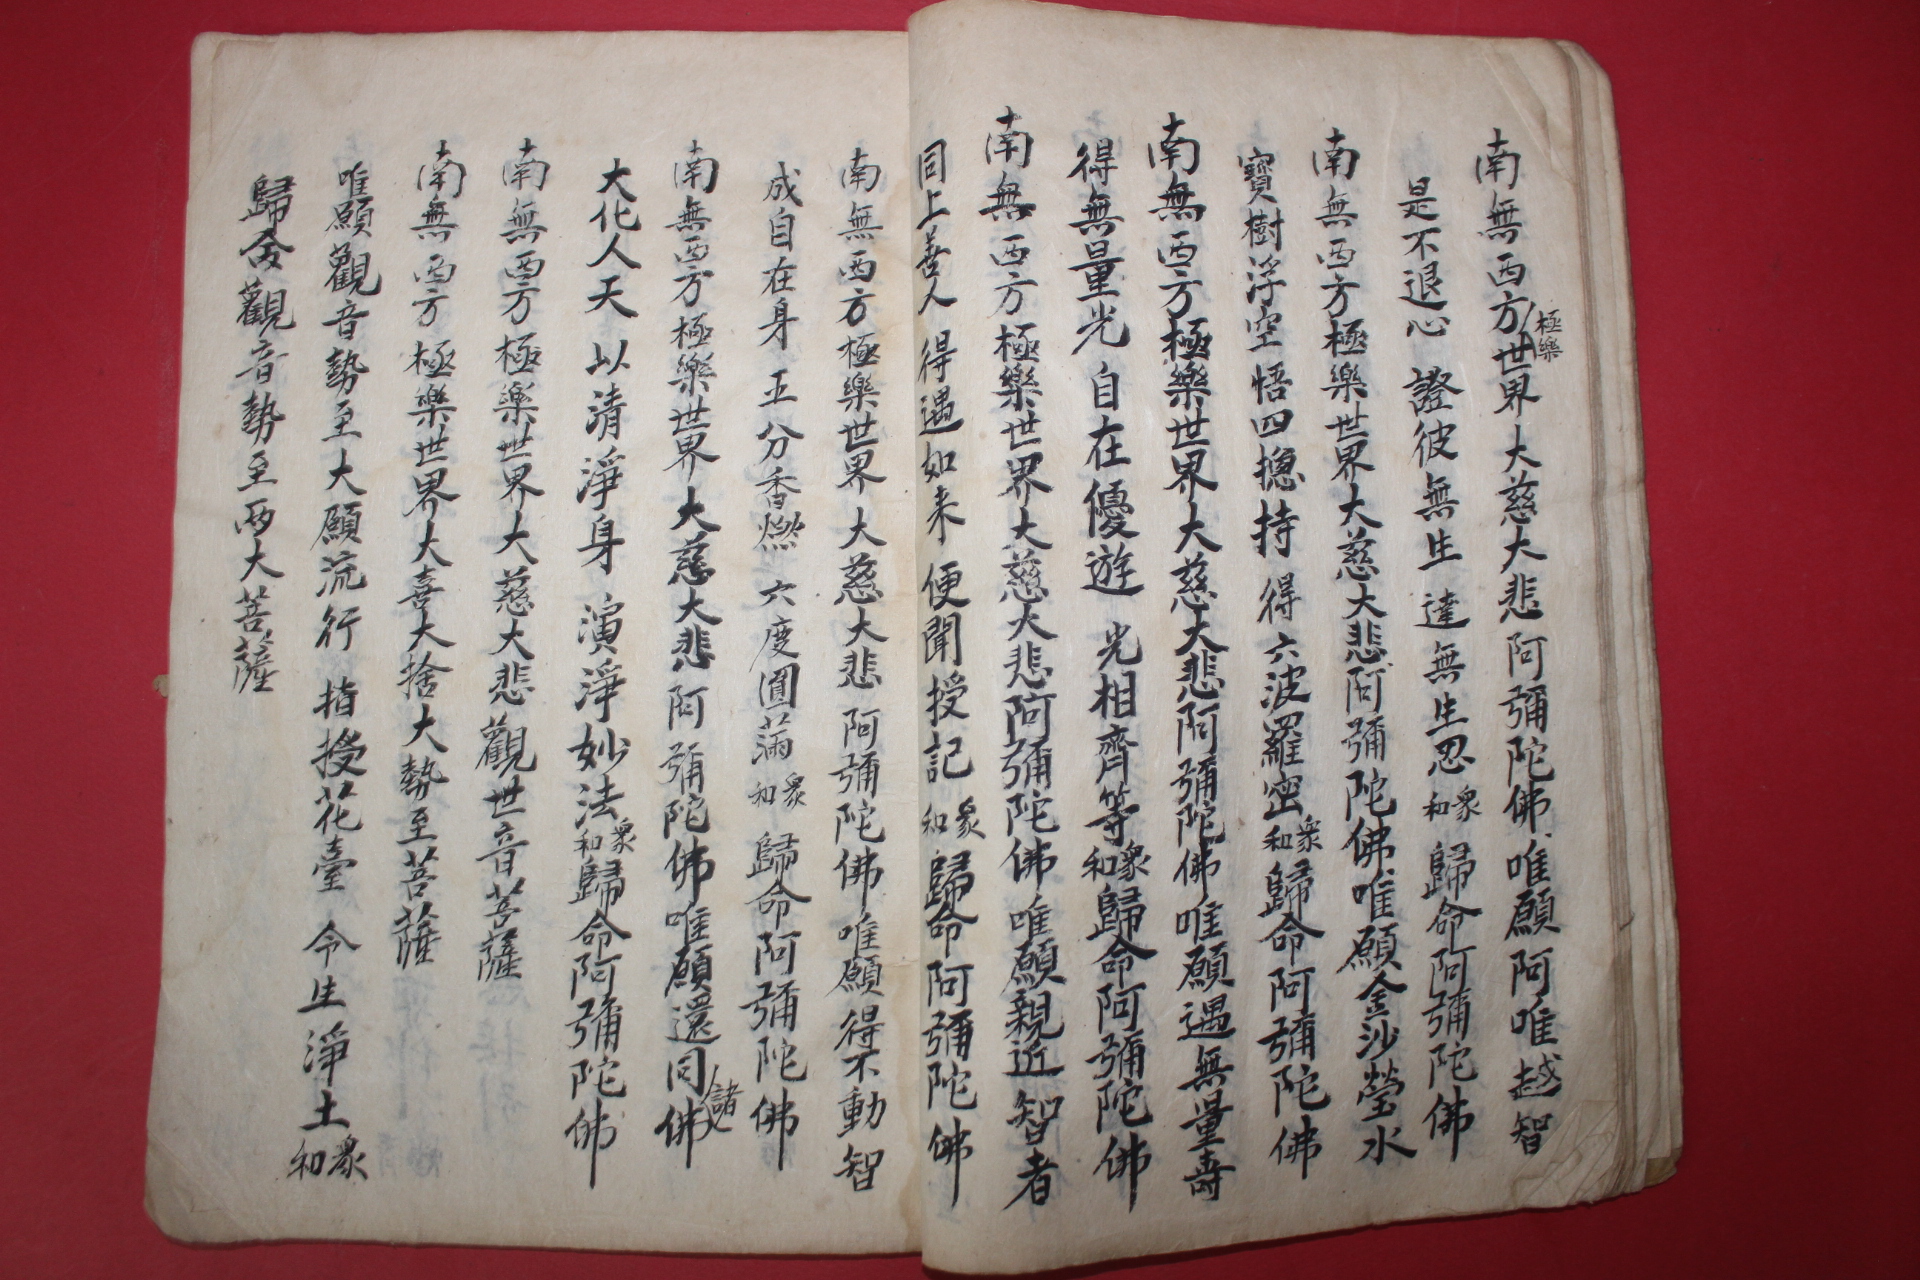 南無西方極樂世界大慈大悲阿彌陀佛唯願阿唯越智
是不退心 證彼無生 達無生忍 衆和 歸命阿彌陀佛
南無西方極樂世界大慈大悲阿彌陀佛唯願金沙瑩水
寶樹浮空 悟四揔持 得六波羅密 衆和 歸命阿彌陀佛
南無西方極樂世界大慈大悲阿彌陀佛唯願遇無量壽
得無量光 自在優遊 光相齊等 衆和 歸命阿彌陀佛
南無西方極樂世界大慈大悲阿彌陀佛唯願親近智者
同上善人 得遇如来 便聞授記 衆和 歸命阿彌陀佛
南無西方極樂世界大慈大悲阿彌陀佛唯願得不動智
成自在身 五分香燃 六度圓滿 衆和 歸命阿彌陀佛
南無西方極樂世界大慈大悲阿彌陀佛唯願還同諸佛
大化人天 以清淨身 演淨妙法 衆和 歸命阿彌陀佛
南無西方極樂世界大慈大悲觀世音菩薩
南無西方極樂世界大喜大捨大勢至菩薩
唯願觀音勢至大願流行 指授花臺 令生淨土 衆和
歸命觀音勢至两大菩薩